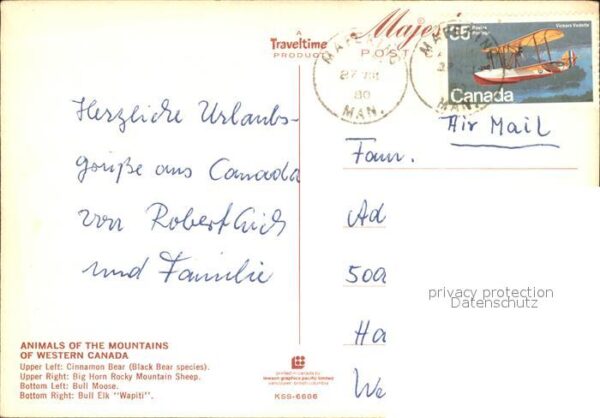 A
Traveltime
PRODUCT
POST
MAN.
27 VIII
80
MAN.
35 Postes
Vickers Vedette
Canada
Air Mail
Herzliche Urlaubs-
grüße aus Canada
von Robert
und Familie
Fam.
Ad
50a
Ha
We
privacy protection
Datenschutz
ANIMALS OF THE MOUNTAINS
OF WESTERN CANADA
Upper Left: Cinnamon Bear (Black Bear species).
Upper Right: Big Horn Rocky Mountain Sheep.
Bottom Left: Bull Moose.
Bottom Right: Bull Elk "Wapiti".
printed in canada by
lawson graphics pacific limited
vancouver, british columbia
KSS-6686